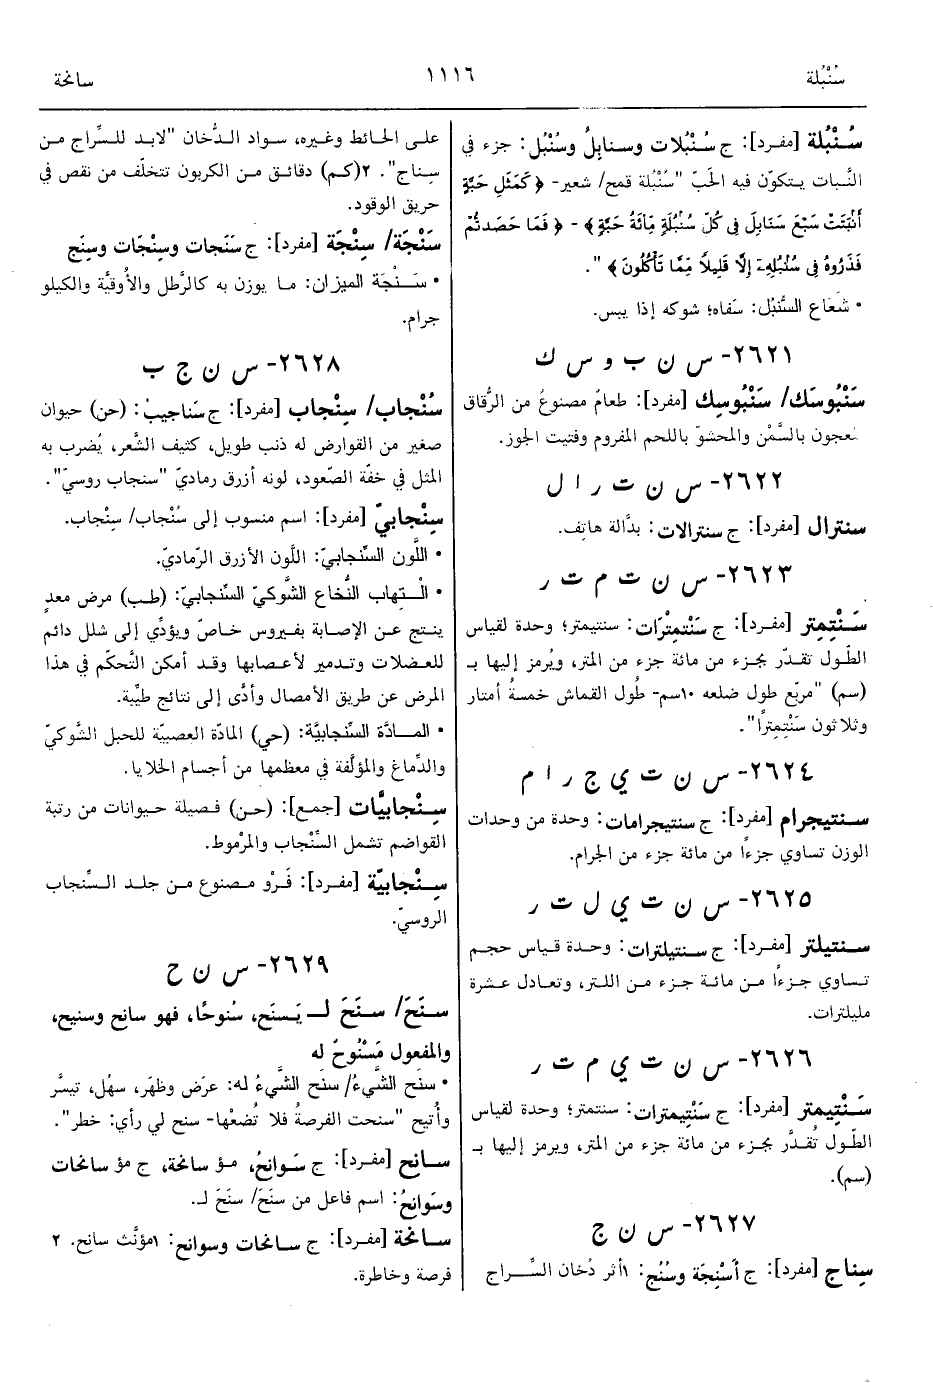 سُنْبُلة
١١١٦
سانحة
سُنْبُلة [مفرد]: ج سُنْبُلات وسنابِلُ وسُنْبُل: جزء في
النَّبات يتكوّن فيه الحَبّ "سُنْبُلة قمح/ شعير- ﴿كَمَثَلِ حَبَّةٍ
أَنْبَتَتْ سَبْعَ سَنَابِلَ فِي كُلِّ سُنْبُلَةٍ مِائَةُ حَبَّةٍ﴾ - ﴿فَمَا حَصَدتُّمْ
فَذَرُوهُ فِي سُنْبُلِهِ إِلَّا قَلِيلاً مِمَّا تَأْكُلُونَ﴾".
• شَعَاع السُّنْبُل: سَفاه؛ شوكه إذا يبس.
٢٦٢١- س ن ب و س ك
سَنْبُوسَك/ سَنْبُوسِك [مفرد]: طعامٌ مصنوعٌ من الرُّقاق
معجون بالسَّمْن والمحشوّ باللحم المفروم وفتيت الجوز.
٢٦٢٢- س ن ت ر ا ل
سنترال [مفرد]: ج سنترالات: بدَّالة هاتِف.
٢٦٢٣- س ن ت م ت ر
سَنْتِمِتر [مفرد]: ج سَنْتِمِتْرَات: سنتيمتر؛ وحدة لقياس
الطّول تقدّر بجزء من مائة جزء من المتر، ويُرمز إليها بـ
(سم) "مربّع طول ضلعه ١٠سم- طُول القماش خمسةُ أمتار
وثلاثون سَنْتِمِتراً".
٢٦٢٤- س ن ت ي ج ر ا م
سنتيجرام [مفرد]: ج سنتيجرامات: وحدة من وحدات
الوزن تساوي جزءاً من مائة جزء من الجرام.
٢٦٢٥- س ن ت ي ل ت ر
سنتيلتر [مفرد]: ج سنتيلترات: وحدة قياس حجم
تساوي جزءاً من مائة جزء من اللتر، وتعادل عشرة
مليلترات.
٢٦٢٦- س ن ت ي م ت ر
سَنْتِيمتر [مفرد]: ج سَنْتِيمترات: سنتمتر؛ وحدة لقياس
الطّول تُقدَّر بجزء من مائة جزء من المتر، ويرمز إليها بـ
(سم).
٢٦٢٧- س ن ج
سِناج [مفرد]: ج أَسْنِجَة وسُنُج: ١أثر دُخان السِّراج
على الحائط وغيره، سواد الدُّخان "لابد للسِّراج من
سِناج". ٢(كم) دقائق من الكربون تتخلّف من نقص في
حريق الوقود.
سَنْجَة/ سِنْجَة [مفرد]: ج سَنَجات وسِنْجَات وسِنَج
• سَنْجَة الميزان: ما يوزن به كالرَّطل والأوقيَّة والكيلو
جرام.
٢٦٢٨- س ن ج ب
سُنْجاب/ سِنْجاب [مفرد]: ج سَناجيبُ: (حن) حيوان
صغير من القوارض له ذنب طويل، كثيف الشَّعر، يُضرب به
المثل في خفّة الصّعود، لونه أزرق رماديّ "سنجاب روسيّ".
سِنْجابيّ [مفرد]: اسم منسوب إلى سُنْجاب/ سِنْجاب.
• اللَّون السِّنجابيّ: اللَّون الأزرق الرّماديّ.
• الْتهاب النُّخاع الشَّوكيّ السِّنجابيّ: (طب) مرض معدٍ
ينتج عن الإصابة بفيروس خاصّ ويؤدِّي إلى شلل دائم
للعضلات وتدمير لأعصابها وقد أمكن التَّحكّم في هذا
المرض عن طريق الأمصال وأدَّى إلى نتائج طيِّبة.
• المادَّة السِّنجابيَّة: (حي) المادّة العصبيّة للحبل الشَّوكيّ
والدِّماغ والمؤلَّفة في معظمها من أجسام الخلايا.
سِنْجابيَّات [جمع]: (حن) فصيلة حيوانات من رتبة
القواضم تشمل السِّنْجاب والمرْموط.
سِنْجابيّة [مفرد]: فَرْو مصنوع من جلد السِّنجاب
الروسيّ.
٢٦٢٩- س ن ح
سنَحَ/ سنَحَ لـ يَسنَح، سُنوحًا، فهو سانح وسنيح،
والمفعول مَسْنُوحٌ له
• سنَح الشَّيءُ/ سنَح الشَّيءُ له: عرَض وظهَر، سهُل، تيسَّر
وأُتيح "سنحت الفرصةُ فلا تُضعْها- سنح لي رأي: خطر".
سانح [مفرد]: ج سَوانحُ، مؤ سانحة، ج مؤ سانحات
وسَوانحُ: اسم فاعل من سنَحَ/ سنَحَ لـ.
سانحة [مفرد]: ج سانحات وسوانح: ١مؤنَّث سانح. ٢
فرصة وخاطرة.